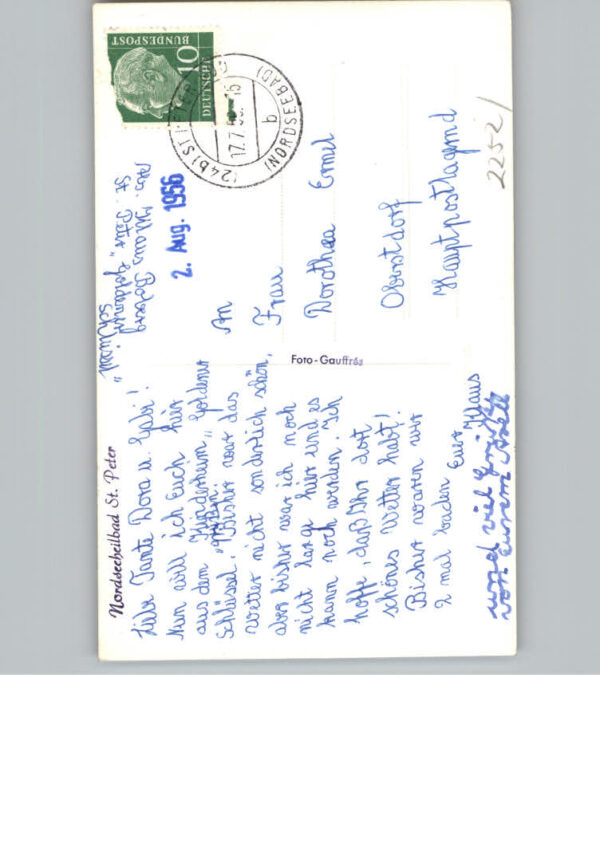 Nordseeheilbad St. Peter
Liebe Tante Dora u. Gabi!
Nun will ich Euch hier
aus dem Kinderheim „Goldener
Schlüssel". Bisher war das
Wetter nicht sonderlich schön,
aber bisher war ich noch
nicht lange hier und es
kann noch werden. Ich
hoffe, daß Ihr dort
schönes Wetter habt!
Bisher waren wir
2 mal baden Euer Klaus
und viel Grüße
von Eurem
Foto-Gauffrés
Abs. Klaus
St. Peter, „Goldener
Schlüssel"
2. Aug. 1956
DEUTSCHE
BUNDESPOST
10
(24b) ST. PETER
17.7.56.-16
b
(NORDSEEBAD)
An
Frau
Dorothea Ermel
Oberstdorf
Hauptpostlagernd
2252/